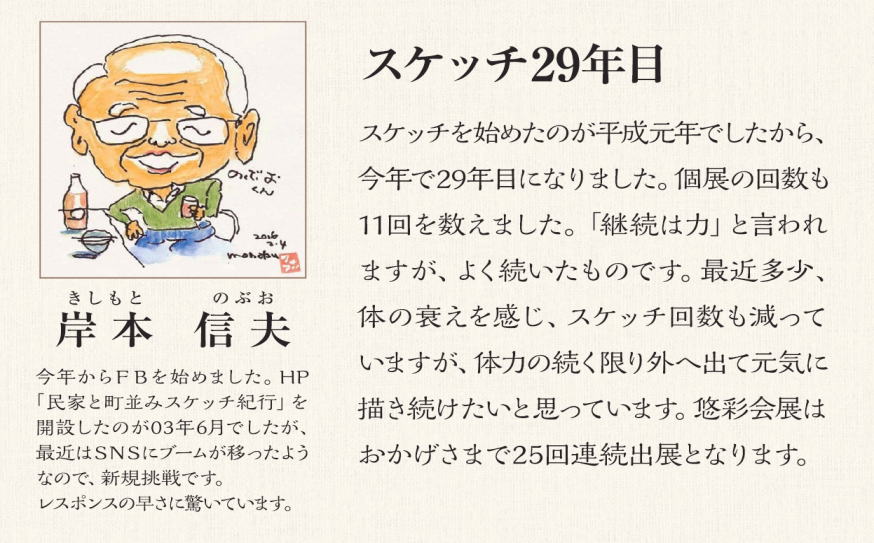 のぶお
くん
2016
2.4
きしもと のぶお
岸本 信夫
今年からＦＢを始めました。HP
「民家と町並みスケッチ紀行」を
開設したのが03年6月でしたが、
最近はSNSにブームが移ったよう
なので、新規挑戦です。
レスポンスの早さに驚いています。
スケッチ29年目
スケッチを始めたのが平成元年でしたから、
今年で29年目になりました。個展の回数も
11回を数えました。「継続は力」と言われ
ますが、よく続いたものです。最近多少、
体の衰えを感じ、スケッチ回数も減って
いますが、体力の続く限り外へ出て元気に
描き続けたいと思っています。悠彩会展は
おかげさまで25回連続出展となります。